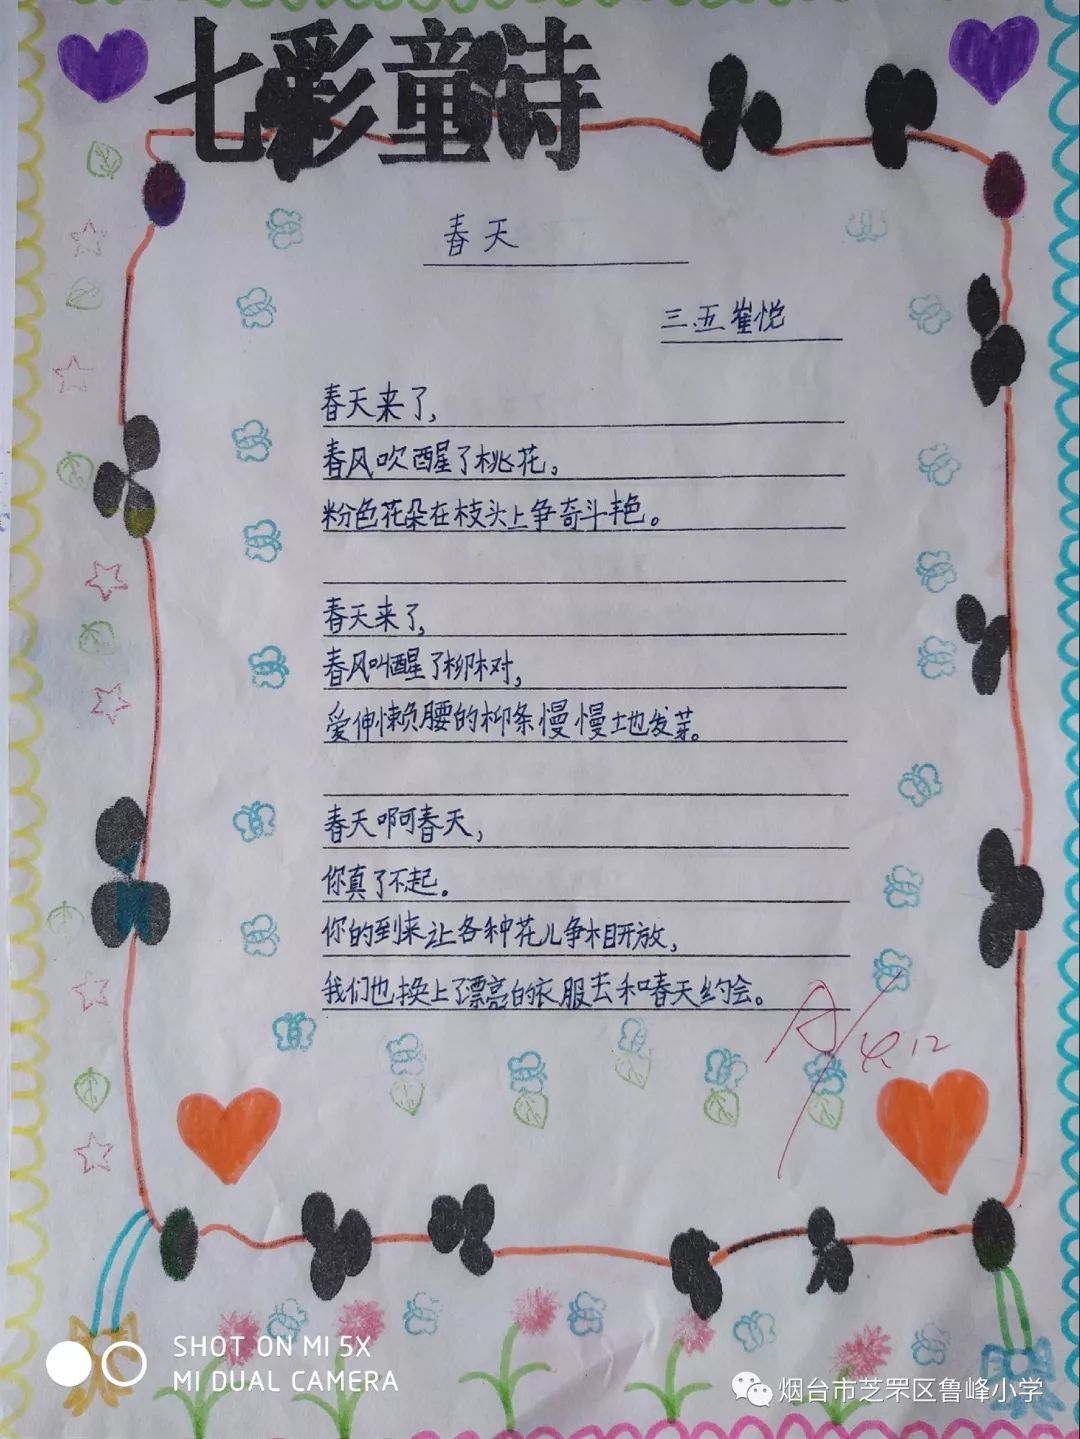 七彩童诗
春天
三.五崔悦
春天来了,
春风吹醒了桃花,
粉色花朵在枝头上争奇斗艳。
春天来了,
春风叫醒了柳树,
爱伸懒腰的柳条慢慢地发芽。
春天啊春天,
你真了不起。
你的到来让各种花儿争相开放,
我们也换上了漂亮的衣服去和春天约会。
A 4.12
SHOT ON MI 5X
MI DUAL CAMERA
烟台市芝罘区鲁峰小学